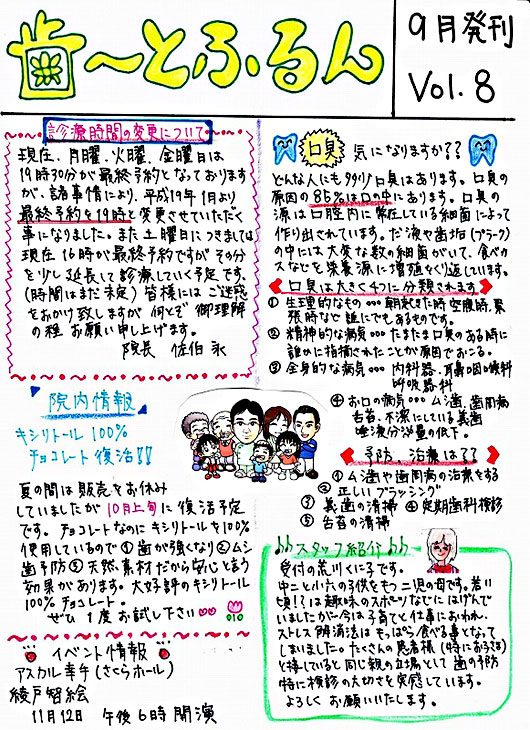 歯〜とふるん
9月発刊
Vol.8
診療時間の変更について
現在、月曜、火曜、金曜日は
19時30分が最終予約となっております
が、諸事情により、平成19年1月より
最終予約を19時と変更させていただく
事になりました。また土曜日につきましては
現在16時が最終予約ですがその分
を少し延長して診療していく予定です。
(時間はまだ未定) 皆様にはご迷惑
をおかけ致しますが何とぞ御理解
の程お願い申し上げます。
院長 佐伯 永
院内情報
キシリトール100%
チョコレート復活!!
夏の間は販売をお休み
していましたが10月上旬に復活予定
です。チョコレートなのにキシリトールを100%
使用しているので①歯が強くなり②ムシ
歯予防③天然素材だから安心と言う
効果があります。大好評のキシリトール
100%チョコレート。
ぜひ1度お試し下さい
イベント情報
アスカル幸手(さくらホール)
綾戸智絵
11月12日 午後6時開演
口臭 気になりますか??
どんな人にも多少り口臭はあります。口臭の
原因の85%は口の中にあります。口臭の
源は口腔内に常在している細菌によって
作り出されています。だ液や歯垢(プラーク)
の中には大変な数の細菌がいて、食べカ
スなどを栄養源に増殖をくり返しています。
口臭は大きく4つに分類されます
①生理的なもの…朝起きた時空腹時、緊
張時など誰にでもあるものです。
②精神的な病気…たまたま口臭のある時に
誰かに指摘されたことが原因でおこる。
③全身的な病気…内科器・耳鼻咽喉科
呼吸器科
④お口の病気…ムシ歯、歯周病
舌苔、不潔にしている義歯
唾液分泌量の低下。
予防 治療は??
①ムシ歯や歯周病の治療をする
②正しいブラッシング
③義歯の清掃 ④定期歯科検診
⑤舌苔の清掃
スタッフ紹介
受付の荒川くに子です。
中二と小六の子供をもつ二児の母です。若い
頃!?は趣味のスポーツなどにはげんで
いましたが今は子育てと仕事におわれ、
ストレス解消法はもっぱら食べる事となって
しまいました。たくさんの患者様(時におう様)
と接していると同じ親の立場として歯の予防
特に検診の大切さを実感しています。
よろしくお願いいたします。